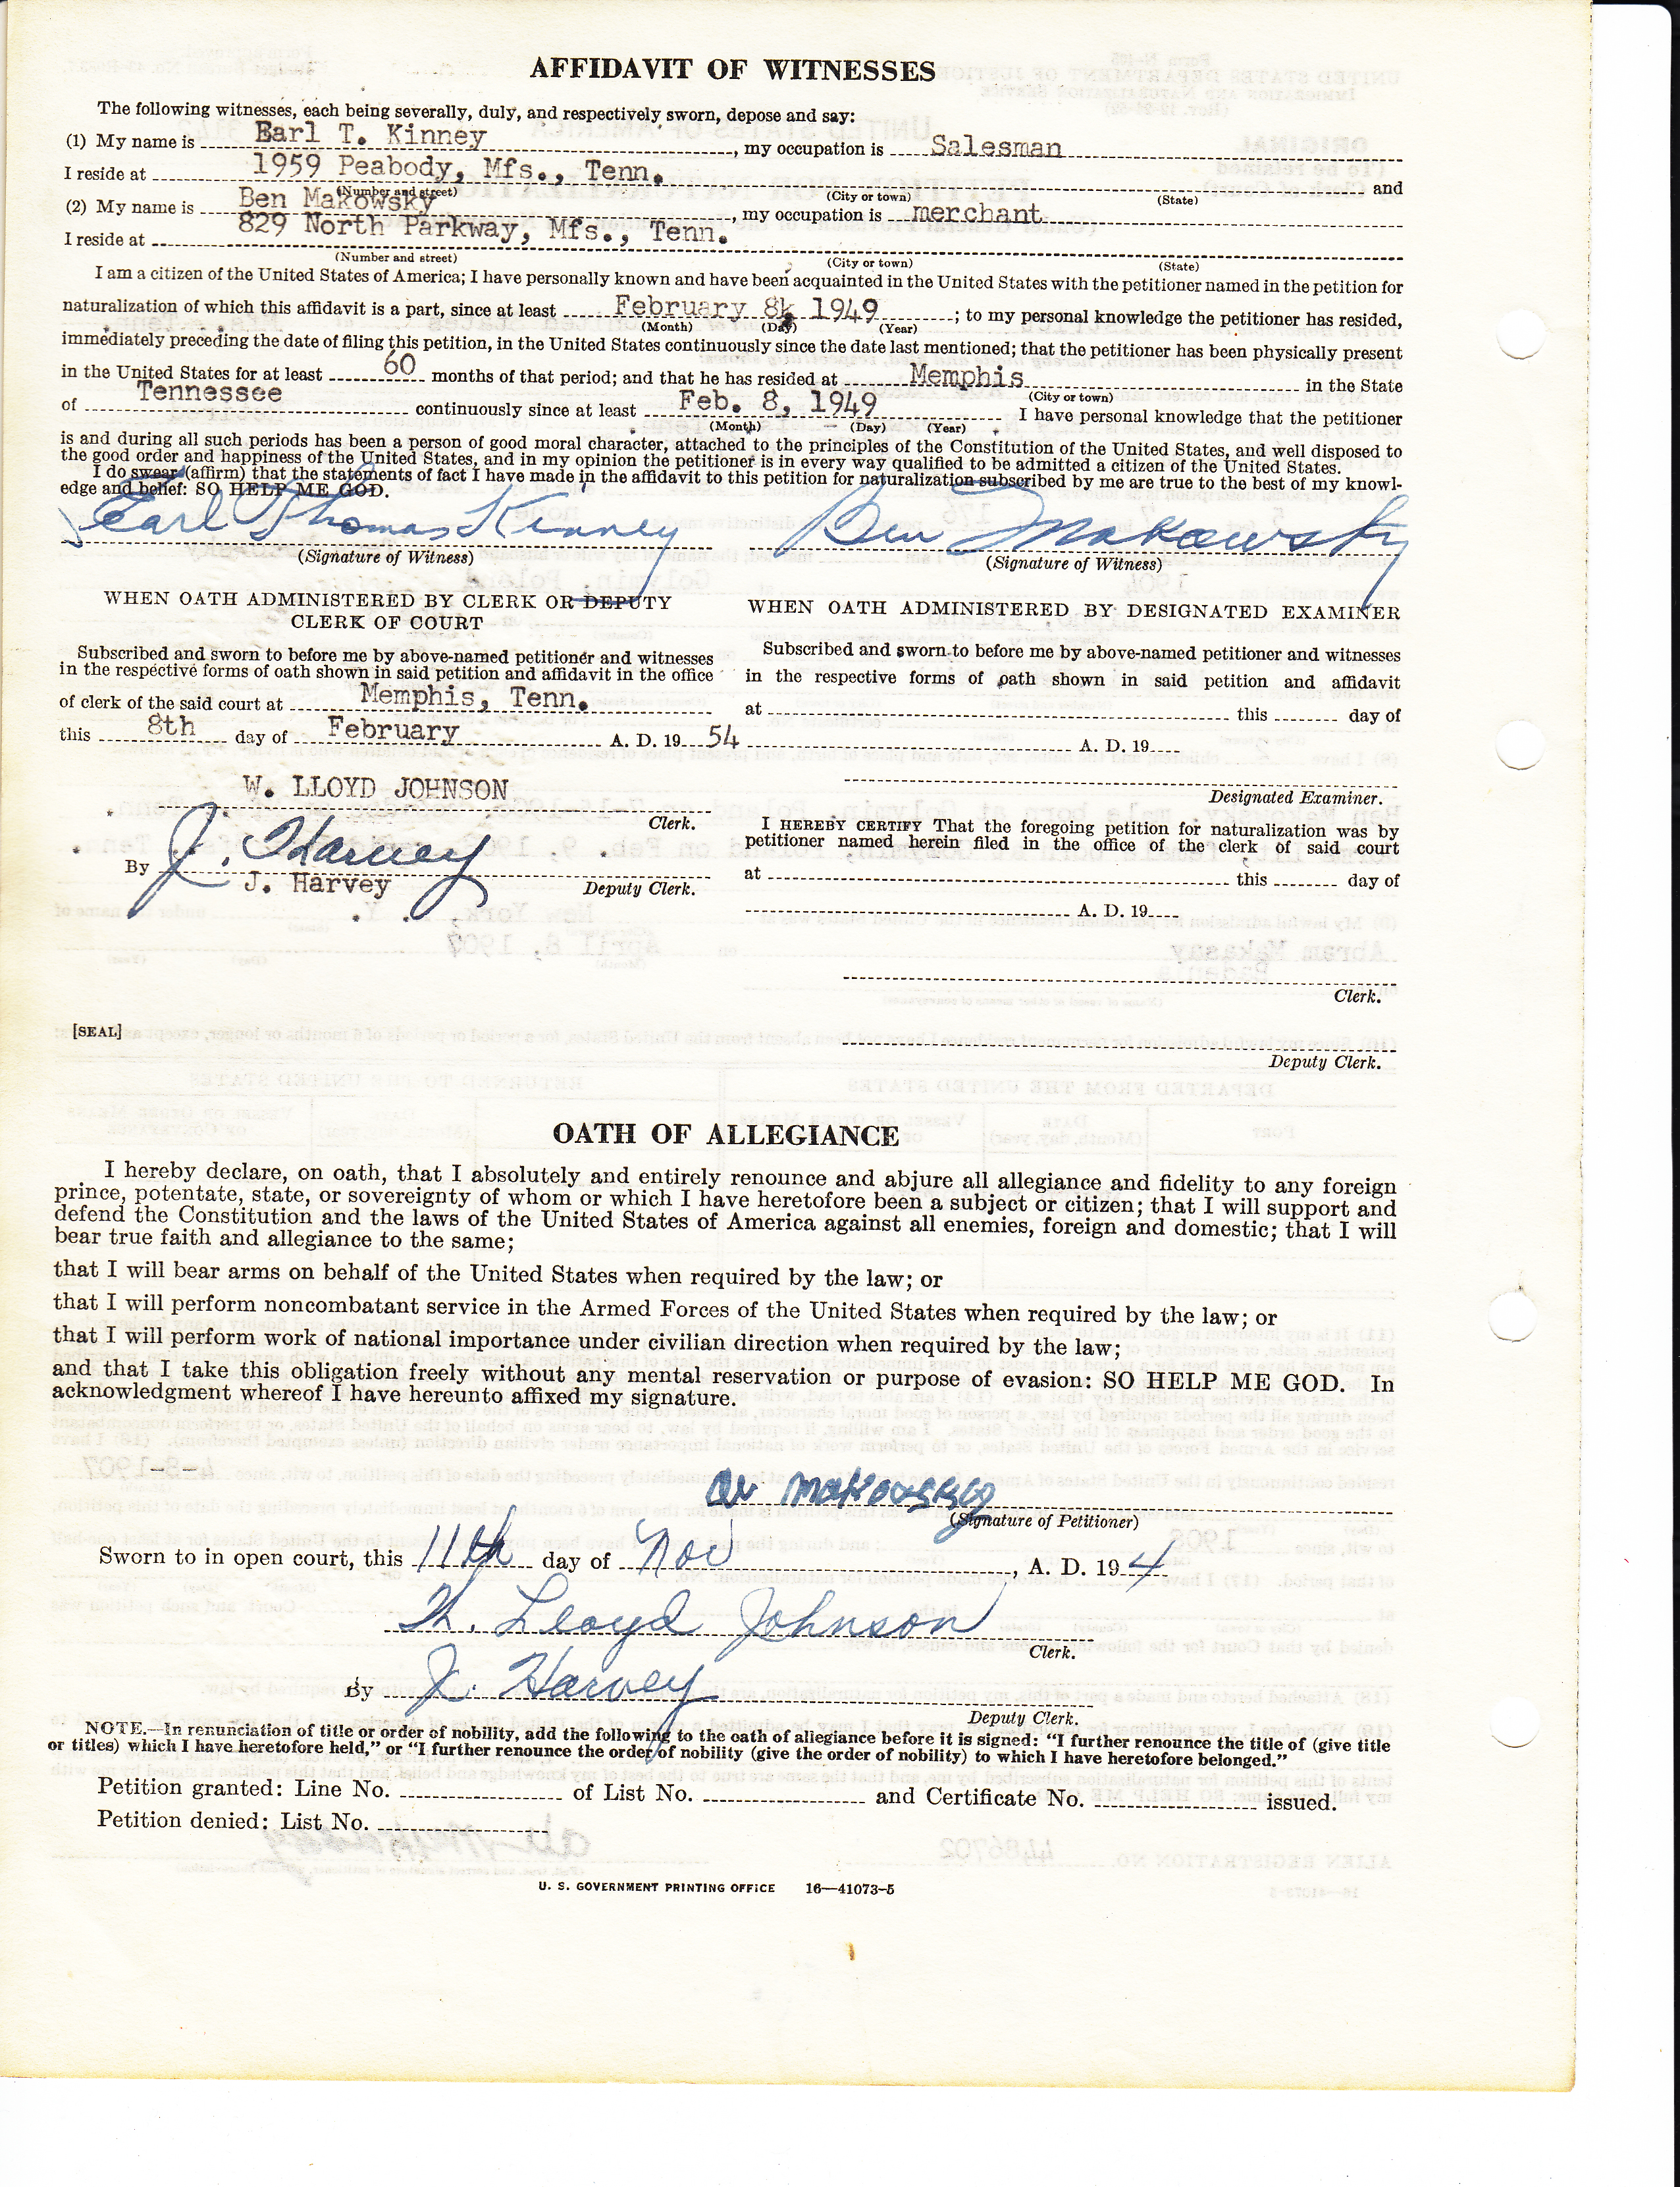 AFFIDAVIT OF WITNESSES
The following witnesses, each being severally, duly, and respectively sworn, depose and say:
(1) My name is Earl T. Kinney, my occupation is Salesman
I reside at 1959 Peabody, Mfs., Tenn. and
(Number and street) (City or town) (State)
(2) My name is Ben Makowsky, my occupation is merchant
I reside at 829 North Parkway, Mfs., Tenn.
(Number and street) (City or town) (State)
I am a citizen of the United States of America; I have personally known and have been acquainted in the United States with the petitioner named in the petition for
naturalization of which this affidavit is a part, since at least February 8, 1949; to my personal knowledge the petitioner has resided,
(Month) (Day) (Year)
immediately preceding the date of filing this petition, in the United States continuously since the date last mentioned; that the petitioner has been physically present
in the United States for at least 60 months of that period; and that he has resided at Memphis in the State
(City or town)
of Tennessee continuously since at least Feb. 8, 1949 I have personal knowledge that the petitioner
(Month) (Day) (Year)
is and during all such periods has been a person of good moral character, attached to the principles of the Constitution of the United States, and well disposed to
the good order and happiness of the United States, and in my opinion the petitioner is in every way qualified to be admitted a citizen of the United States.
I do swear (affirm) that the statements of fact I have made in the affidavit to this petition for naturalization subscribed by me are true to the best of my knowl-
edge and belief: SO HELP ME GOD.
Earl Thomas Kinney Ben Makowsky
(Signature of Witness) (Signature of Witness)
WHEN OATH ADMINISTERED BY CLERK OR DEPUTY
CLERK OF COURT
Subscribed and sworn to before me by above-named petitioner and witnesses
in the respective forms of oath shown in said petition and affidavit in the office
of clerk of the said court at Memphis, Tenn.
this 8th day of February A. D. 19 54
W. LLOYD JOHNSON
Clerk.
By J. Harvey
J. Harvey Deputy Clerk.
WHEN OATH ADMINISTERED BY DESIGNATED EXAMINER
Subscribed and sworn to before me by above-named petitioner and witnesses
in the respective forms of oath shown in said petition and affidavit
at this day of
A. D. 19
Designated Examiner.
I HEREBY CERTIFY That the foregoing petition for naturalization was by
petitioner named herein filed in the office of the clerk of said court
at this day of
A. D. 19
Clerk.
[SEAL]
Deputy Clerk.
OATH OF ALLEGIANCE
I hereby declare, on oath, that I absolutely and entirely renounce and abjure all allegiance and fidelity to any foreign
prince, potentate, state, or sovereignty of whom or which I have heretofore been a subject or citizen; that I will support and
defend the Constitution and the laws of the United States of America against all enemies, foreign and domestic; that I will
bear true faith and allegiance to the same;
that I will bear arms on behalf of the United States when required by the law; or
that I will perform noncombatant service in the Armed Forces of the United States when required by the law; or
that I will perform work of national importance under civilian direction when required by the law;
and that I take this obligation freely without any mental reservation or purpose of evasion: SO HELP ME GOD. In
acknowledgment whereof I have hereunto affixed my signature.
(Signature of Petitioner)
Sworn to in open court, this 11th day of Nov, A. D. 19 4
W. Lloyd Johnson
Clerk.
By J. Harvey
Deputy Clerk.
NOTE.—In renunciation of title or order of nobility, add the following to the oath of allegiance before it is signed: "I further renounce the title of (give title
or titles) which I have heretofore held," or "I further renounce the order of nobility (give the order of nobility) to which I have heretofore belonged."
Petition granted: Line No. of List No. and Certificate No. issued.
Petition denied: List No.
U. S. GOVERNMENT PRINTING OFFICE 16—41073-5